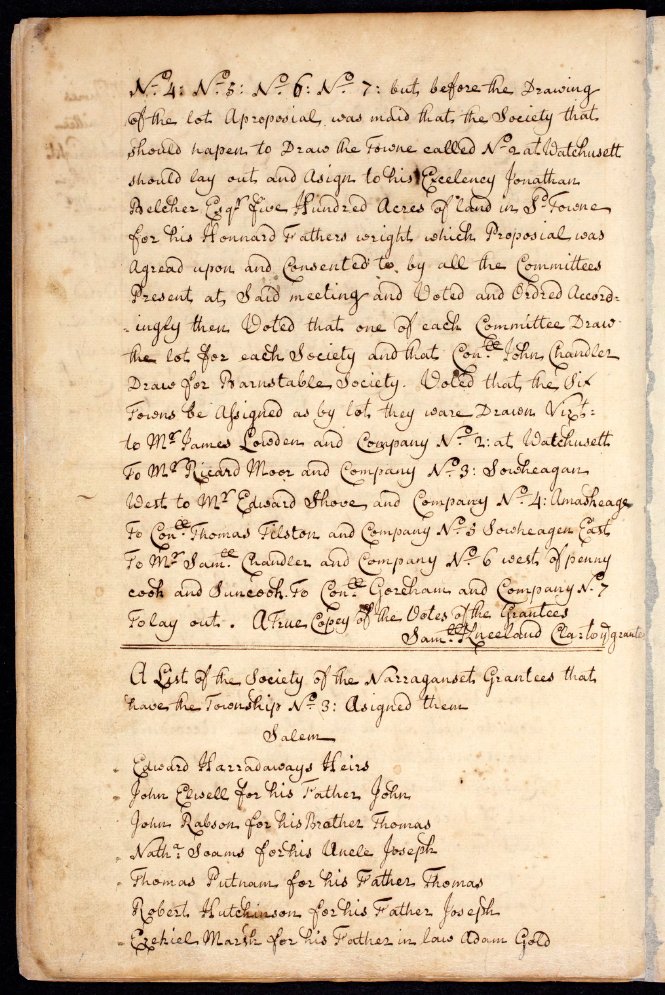 No. 4: No. 5: No. 6: No. 7: but before the Drawing
of the lot Aproposial was maid that the Society that
should hapen to Draw the Towne called No. 2 at Watchusett
should lay out and Asign to his Excelency Jonathan
Belcher Esqr. five Hundred Acres of land in Sd. Towne
for his Honnard Fathers wright which Proposial was
Agread upon and Consented to by all the Committees
Present at Said meeting and Voted and Ordred Accord=
=ingly then Voted that one of each Committee Draw
the lot for each Society and that Conll. John Chandler
Draw for Barnstable Society. Voted that the Six
Towns be Assigned as by lot they ware Drawn Vizt:
to Mr. James Lowden and Company No. 2: at Watchusett
To Mr. Ricard Moor and Company No. 3: Sowheagan
West to Mr. Edward Shove and Company No. 4: Amasheage
To Conll. Thomas Tilston and Company No. 5 Sowheagen East
To Mr. Samll. Chandler and Company No. 6 west of penny
cook and Suncook. To Conll. Goreham and Company No. 7
To lay out. A True Copey of the Votes of the Grantees
Samll. Kneeland Clark to ye grante
A List of the Society of the Narraganset Grantees that
have the Township No. 3: Asigned them
Salem
Edward Harradaways Heirs
John Elwell for his Father John
John Rabson for his Brother Thomas
Natha. Soams for his Uncle Joseph
Thomas Putnam for his Father Thomas
Robert Hutchinson for his Father Joseph
Ezekiel Marsh for his Father in law Adam Gold